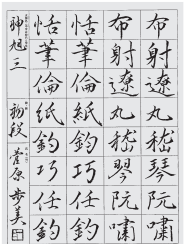 布射遼丸嵇琴阮嘯
布射遼丸嵇琴阮嘯
恬筆倫紙鈞巧任釣
恬筆倫紙鈞巧任釣
旭三 初段 菅原歩美